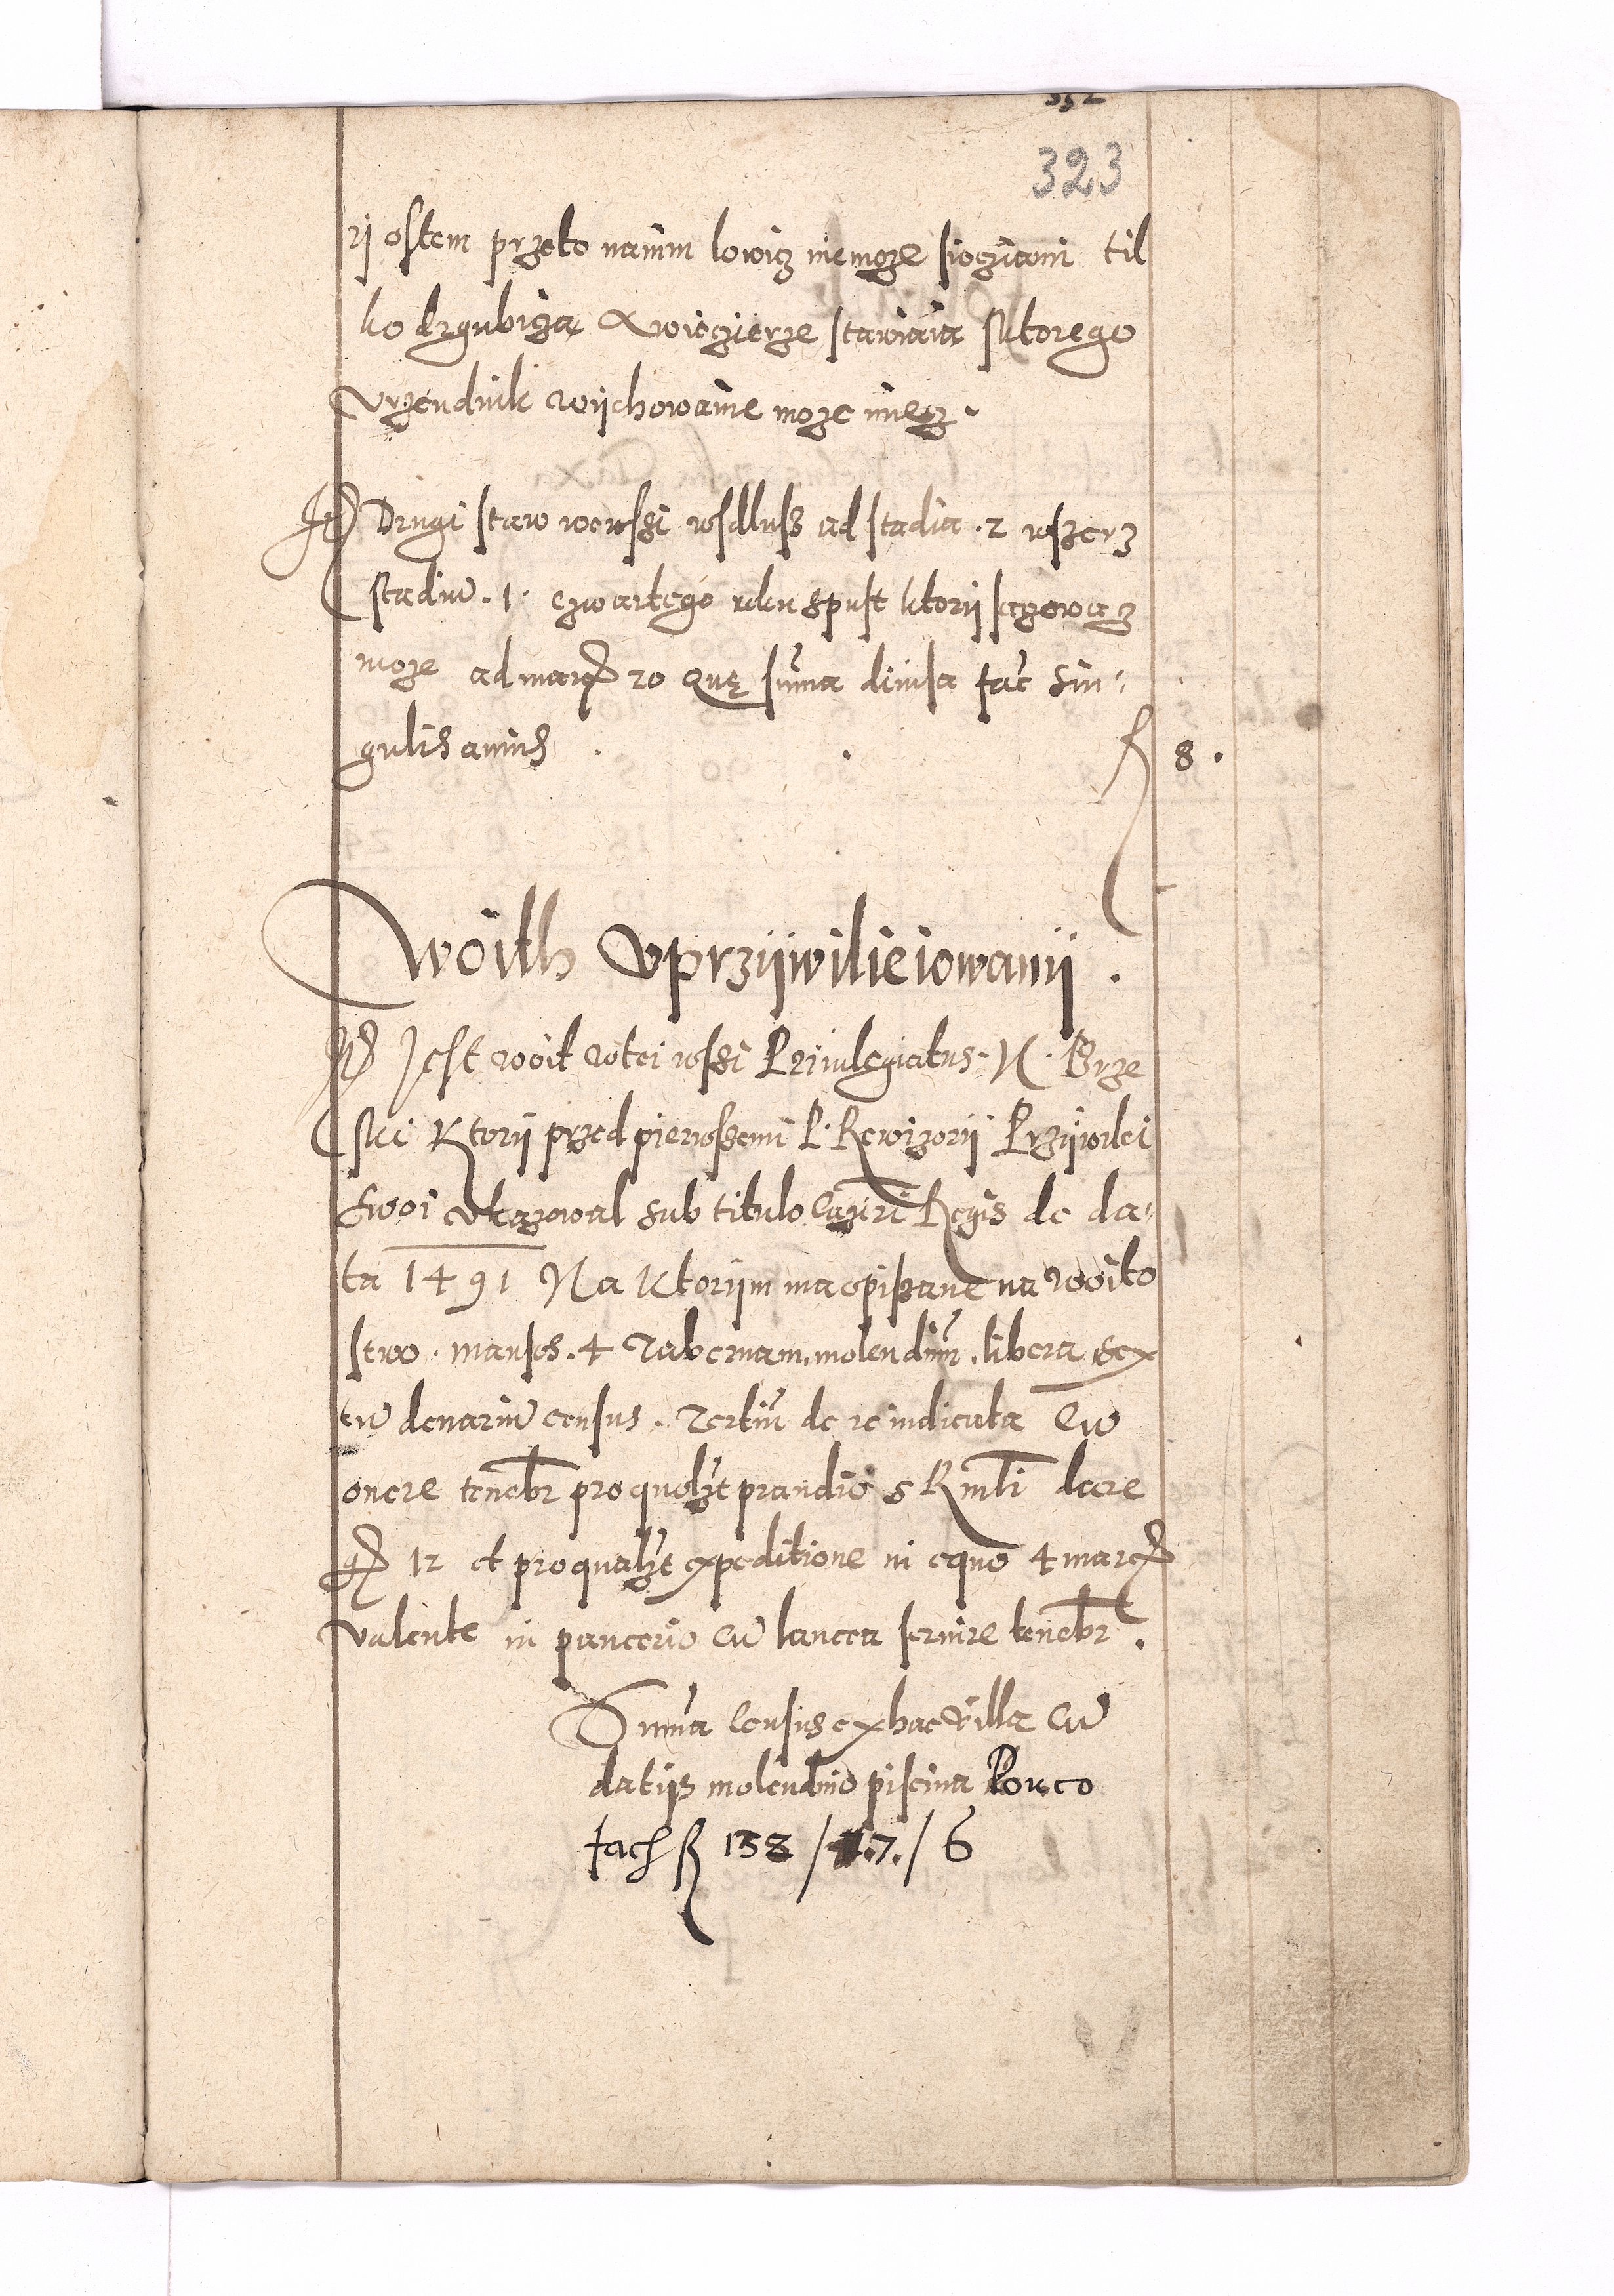 323
rij ostem przeto nanim lowicz niemoze sieczjami til
ko drgubicza Xwieczierze stawiaia sktorego
Vrzendnik wijchowanie moze miecz.
It Drugi staw wewsssi wsdlusz ad stadia . 2 wszerz
stadiū . 1 . czwartego roku spust ktorij sazowacz
moze ad marc 20 Quę sum̃a diuisa fac̃ sin-
gulis annis . . f 8 .
Woith Vprzijwilieiowanij .
It Jest woit wtei wssi Priuilegiatus . N . Brze
ski Ktorij przed pierwszemi P. Rewizorij Przijwilei
swoi vkazowal sub titulo Cazi͂ri Regis de da-
ta 1491 Na Ktorijm ma opiszane na woito
stwo . mansos . 4 Tabernam . molendinũ . libera sex
tū denariū census . Tertiũ de re iudicata Cū
onere teneb̃r pro quolʒt prandio s R mt̃i dare
gr 12 et pro qualʒt expeditione in equo 4 marc
valente in pancerio cū lancea seruire teneb̃r .
Sum̃a Census ex hac villa Cū
datijs molendino piscina Porco
fach f 138 / 17. / 6